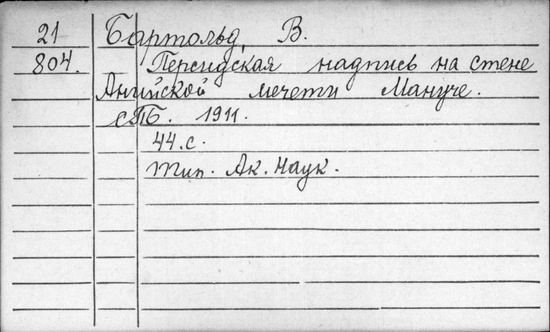 21 Бартольд, В.
804. Персидская надпись на стене
Анийской мечети Мануче.
СПБ. 1911.
44.с.
Тип. Ак. Наук.